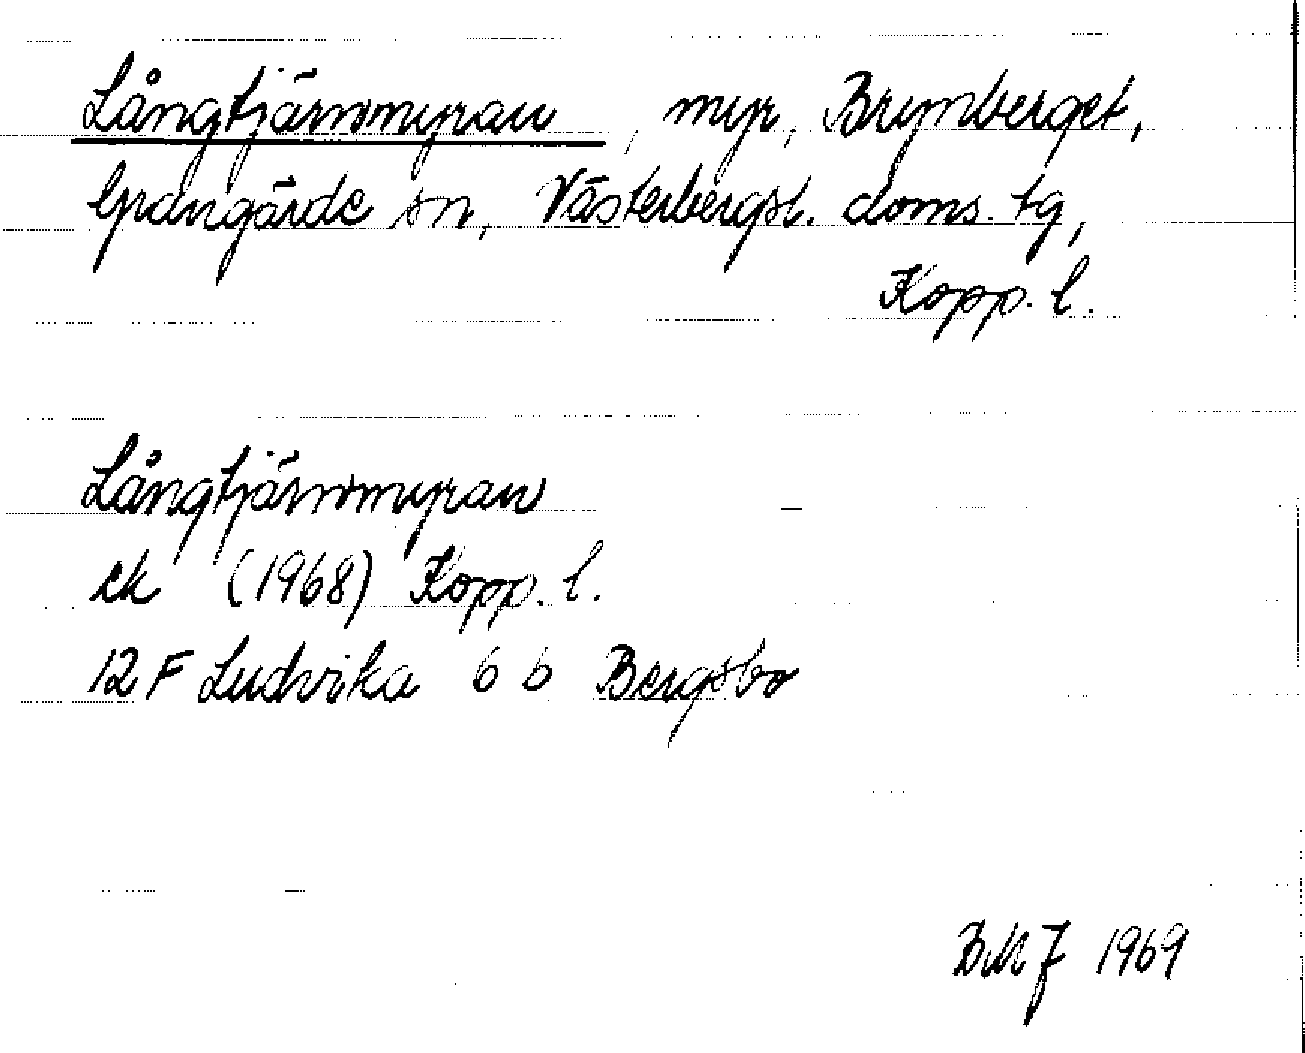 Långtjärnmyran, myr, Brynberget,
Grangärde sn, Västerbergsl. doms. tg,
Kopp. l.
Långtjärnmyran
ek (1968) Kopp. l.
12 F Ludvika 6 b Bergsbo
BMJ 1969